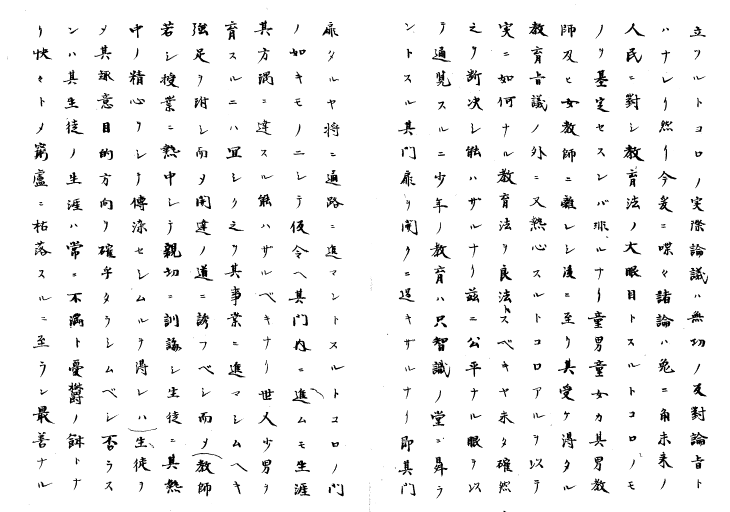 立フルトコロノ実際論議ハ無切ノ反對論旨ト
ハナレリ然リ今爰ニ喋々諸論ハ兎ニ角未来ノ
人民ニ對シ教育法ノ大眼目トスルトコロノモ
ノヲ基定セスンバ非ルナリ童男童女カ其男教
師及ヒ女教師ニ離レシ後ニ至リ其受ケ得タル
教育旨議ノ外ニ又熱心スルトコロアルヲ以テ
実ニ如何ナル教育法ヲ良法トスベキヤ未タ確然
之ヲ断决シ能ハサルナリ茲ニ公平ナル眼ヲ以
テ通覧スルニ少年ノ教育ハ只智識ノ堂ニ昇ラ
ントスル其門扉ヲ開クニ過キサルナリ即其門
扉タルヤ将ニ通路ニ進マントスルトコロノ門
ノ如キモノニシテ仮令ヘ其門内ニ進ムモ生涯
其方隅ニ達スル能ハサルベキナリ世人少男ヲ
育スルニハ宜シク之ヲ其事業ニ進マシムヘキ
強足ヲ附シ而メ開達ノ道ニ誘フベシ而メ(教師
若シ授業ニ熱中シテ親切ニ訓誨シ生徒ニ其熱
中ノ精心ヲシテ傳染セシムルヲ得レハ(生徒ヲ
メ其趣意目的方向ヲ確乎タラシムベシ否ラス
ンハ其生徒ノ生涯ハ常ニ不満ト憂欝ノ餘トナ
リ快々トメ窮廬ニ枯落スルニ至ラン最善ナル